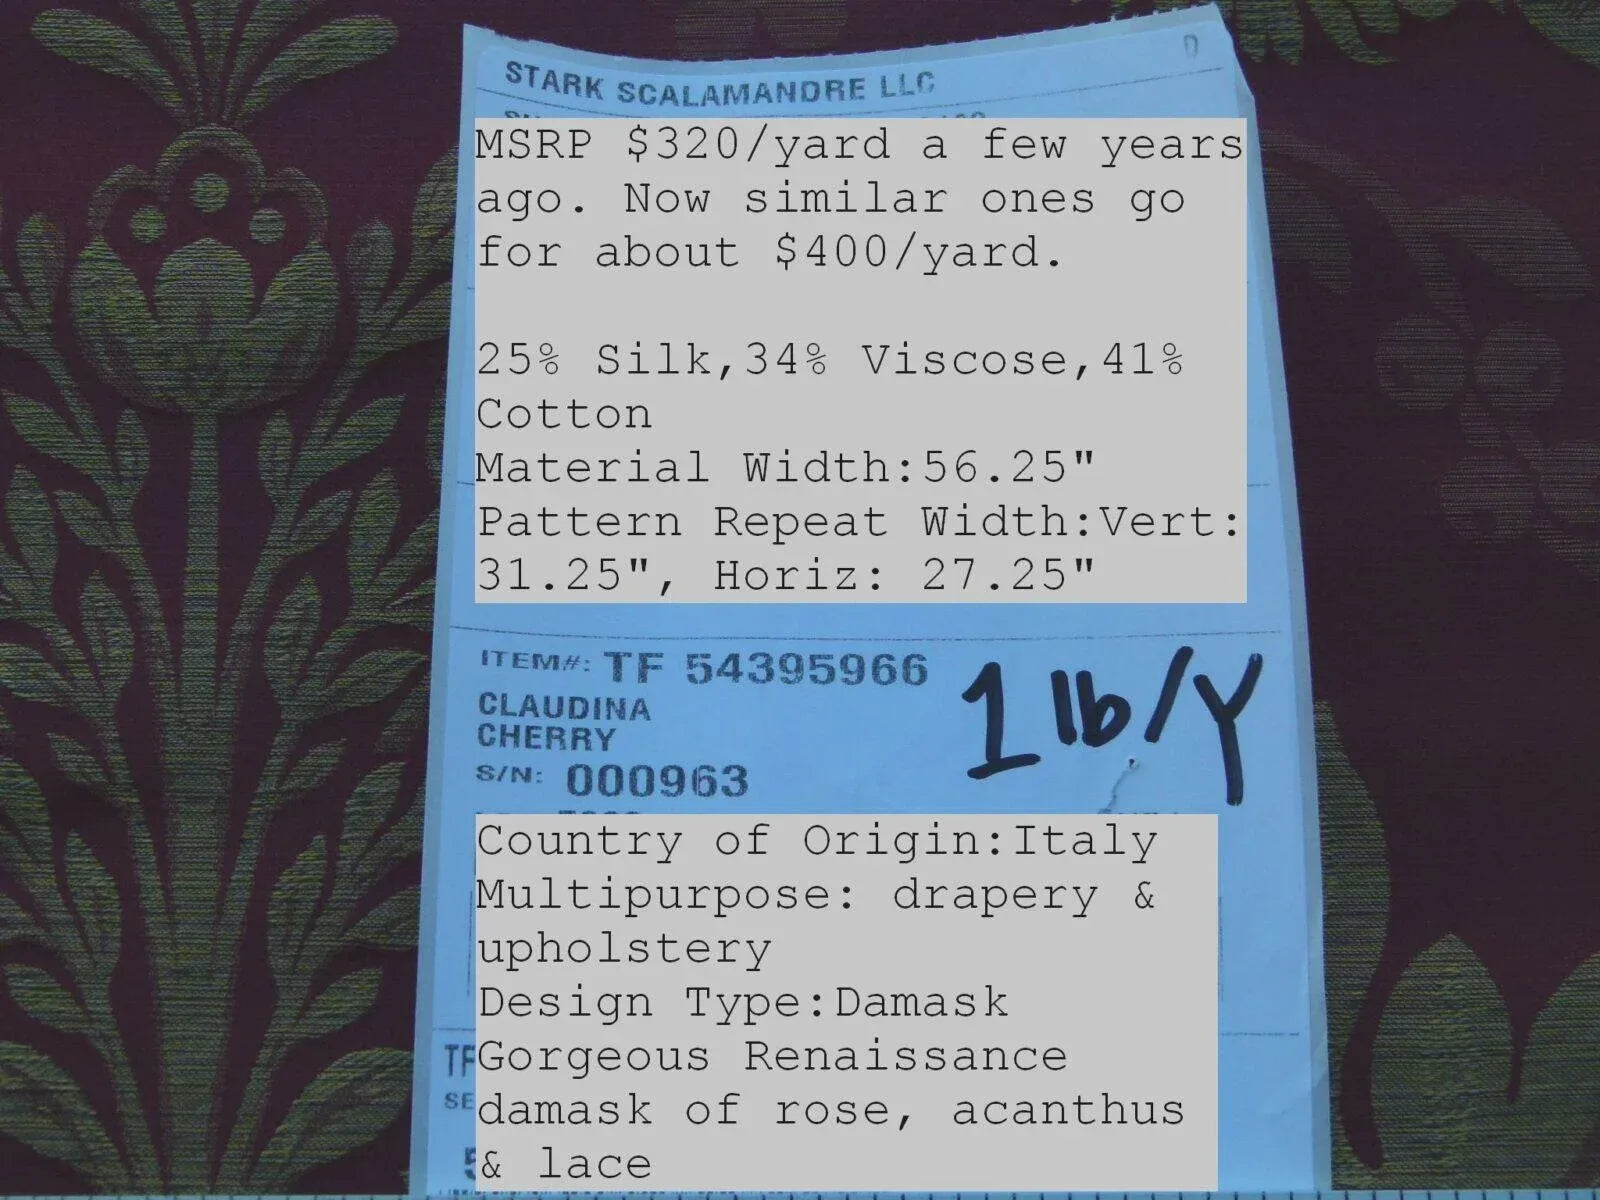 D
STARK SCALAMANDRE LLC
MSRP $320/yard a few years
ago. Now similar ones go
for about $400/yard.
25% Silk,34% Viscose,41%
Cotton
Material Width:56.25"
Pattern Repeat Width:Vert:
31.25", Horiz: 27.25"
ITEM#: TF 54395966
CLAUDINA
CHERRY
S/N: 000963
1 lb/Y
Country of Origin:Italy
Multipurpose: drapery &
upholstery
Design Type:Damask
Gorgeous Renaissance
damask of rose, acanthus
& lace
TF
SE
5